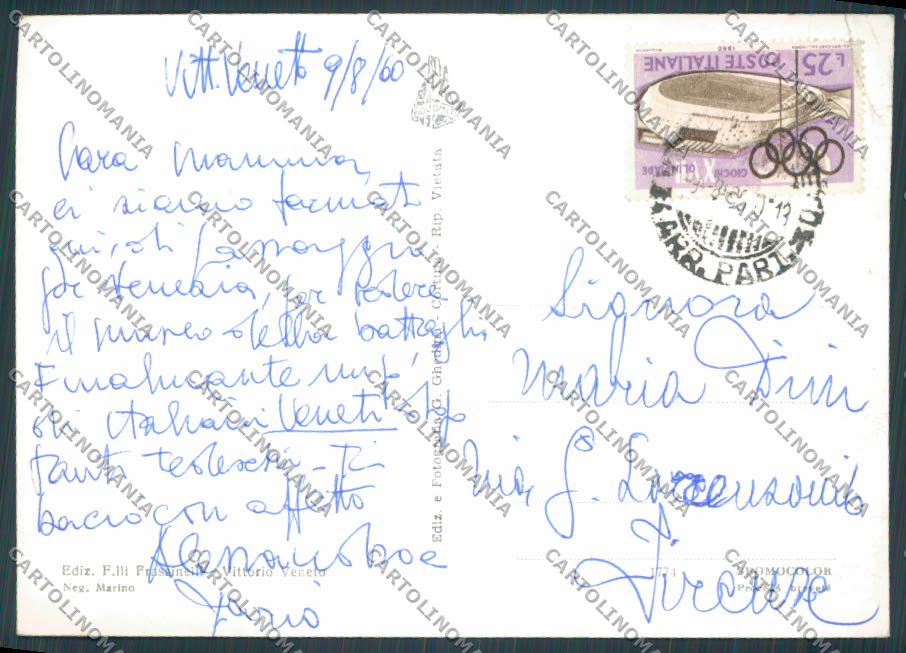 Vitt. Veneto 9/8/60
Cara Mamma,
ci siamo fermati
qui di passaggio
per Venezia, per vedere
il museo della battaglia
Finalmente un po'
di Italiani Veneti dopo
tanti tedeschi – Ti
bacio con affetto
Alessandro e
Ediz. F.lli Frassinelli - Vittorio Veneto
Neg. Marino
Ediz. e Fotografia G. Ghedina - Cortina - Rip. Vietata
POSTE ITALIANE
L.25
1960
GIOCHI XVII OLIMPIADE
ARR. PART.
Signora
Maria Dini
Via G.
Firenze
1774 BROMOCOLOR
CARTOLINOMANIA